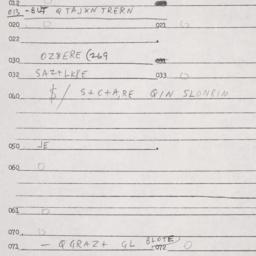 012
013 -BUT QTAJXN TRERN
020 021
022
030 OZ8ERE (269
032 SAZ+LKRE 033
040 $/ S+C+A,RE QIN SLONBIN
050 JE
060
061
070
071 - QGRAZ+ GL BLOTE 072